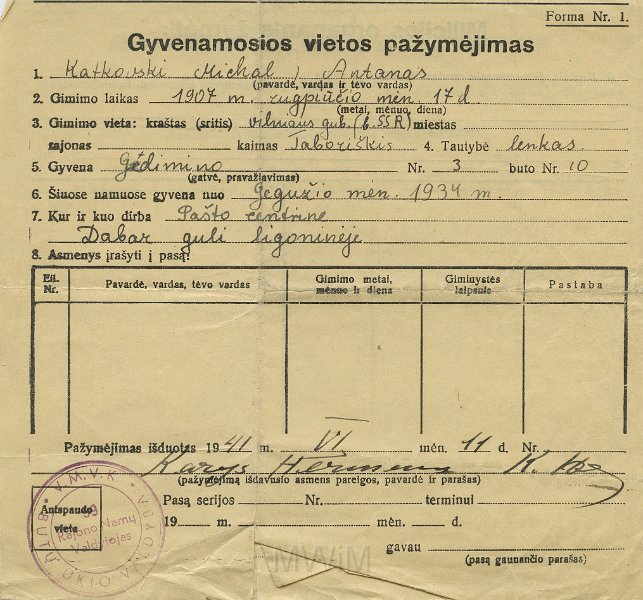 Forma Nr. 1.
Gyvenamosios vietos pažymėjimas
1. Katkovski Michal, Antanas
(pavardė, vardas ir tėvo vardas)
2. Gimimo laikas 1907 m. rugpiučio mėn. 17 d.
(metai, mėnuo, diena)
3. Gimimo vieta: kraštas (sritis) Vilniaus gub. (b. SSR) miestas
rajonas kaimas Taboriškis 4. Tautybė lenkas.
5. Gyvena Gedimino Nr. 3 buto Nr. 10
(gatvė, pravažiavimas)
6. Šiuose namuose gyvena nuo Gegužio mėn. 1934 m.
7. Kur ir kuo dirba Pašto centrine
Dabar guli ligoninėje
8. Asmenys įrašyti į pasą:
Eil. Nr. Pavardė, vardas, tėvo vardas Gimimo metai, mėnuo ir diena Giminystės laipsnis Pastaba
Pažymėjimas išduotas 1941 m. VI mėn. 11 d. Nr.
Karys K.
(pažymėjimą išdavusio asmens pareigos, pavardė ir parašas)
Antspaudo vieta
V.M.V.K.
BUTŲ ŪKIO VALDYBA
Rajono Namų Valdytojas
Pasą serijos Nr. terminui
19 m. mėn. d.
gavau
(pasą gaunančio parašas)
MWiM